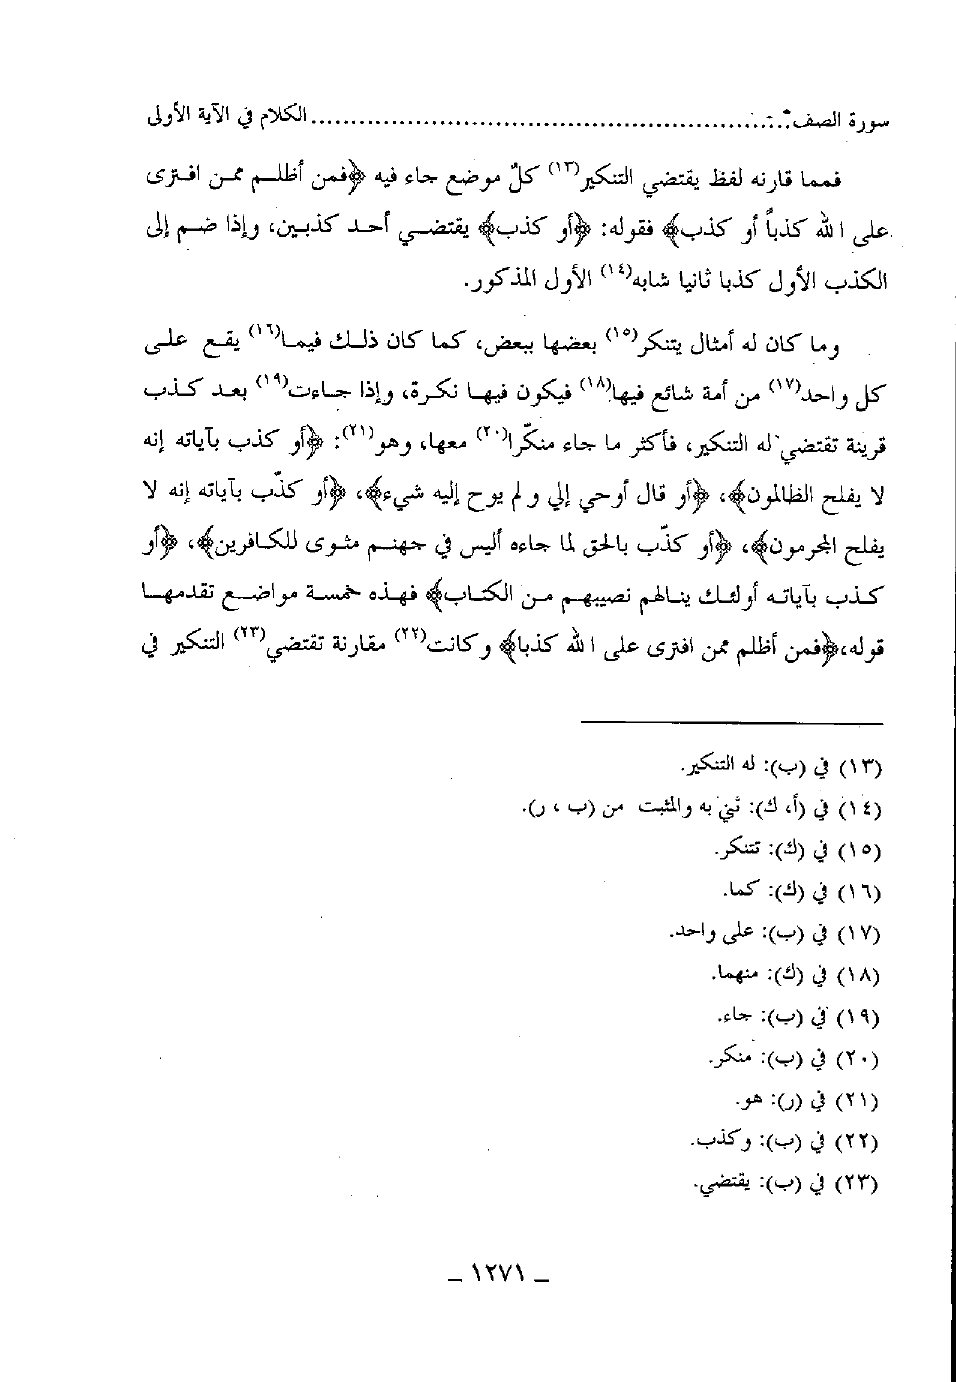 سورة الصف ........................................ الكلام في الآية الأولى
فمما قارنه لفظ يقتضي التنكير(١٣) كلّ موضع جاء فيه ﴿فمن أظلم ممن افترى
على الله كذباً أو كذب﴾ فقوله: ﴿أو كذب﴾ يقتضي أحد كذبين، وإذا ضم إلى
الكذب الأول كذبا ثانيا شابه(١٤) الأول المذكور.
وما كان له أمثال يتنكر(١٥) بعضها ببعض، كما كان ذلك فيما(١٦) يقع على
كل واحد(١٧) من أمة شائع فيها(١٨) فيكون فيها نكرة، وإذا جاءت(١٩) بعد كذب
قرينة تقتضي له التنكير، فأكثر ما جاء منكّرا(٢٠) معها، وهو(٢١): ﴿أو كذب بآياته إنه
لا يفلح الظالمون﴾، ﴿أو قال أوحي إلي ولم يوح إليه شيء﴾، ﴿أو كذّب بآياته إنه لا
يفلح المجرمون﴾، ﴿أو كذّب بالحق لما جاءه أليس في جهنم مثوى للكافرين﴾، ﴿أو
كذب بآياته أولئك ينالهم نصيبهم من الكتاب﴾ فهذه خمسة مواضع تقدمها
قوله، ﴿فمن أظلم ممن افترى على الله كذبا﴾ وكانت(٢٢) مقارنة تقتضي(٢٣) التنكير في
(١٣) في (ب): له التنكير.
(١٤) في (أ، ك): ثني به والمثبت من (ب ، ر).
(١٥) في (ك): تتنكر.
(١٦) في (ك): كما.
(١٧) في (ب): على واحد.
(١٨) في (ك): منهما.
(١٩) في (ب): جاء.
(٢٠) في (ب): منكر.
(٢١) في (ر): هو.
(٢٢) في (ب): وكذب.
(٢٣) في (ب): يقتضي.
_ ١٢٧١ _